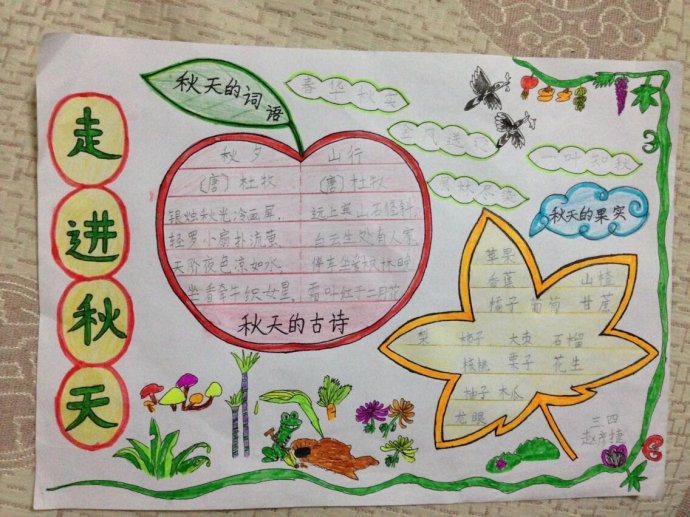 走进秋天
秋天的词语
春华秋实
金风送爽
一叶知秋
秋夕 山行
(唐)杜牧 (唐)杜牧
银烛秋光冷画屏, 远上寒山石径斜,
轻罗小扇扑流萤, 白云生处有人家,
天阶夜色凉如水, 停车坐爱枫林晚
坐看牵牛织女星, 霜叶红于二月花
秋天的古诗
秋天的果实
苹果
香蕉 山楂
橘子 葡萄 甘蔗
梨 柿子 大枣 石榴
核桃 栗子 花生
柚子 木瓜
龙眼
三四